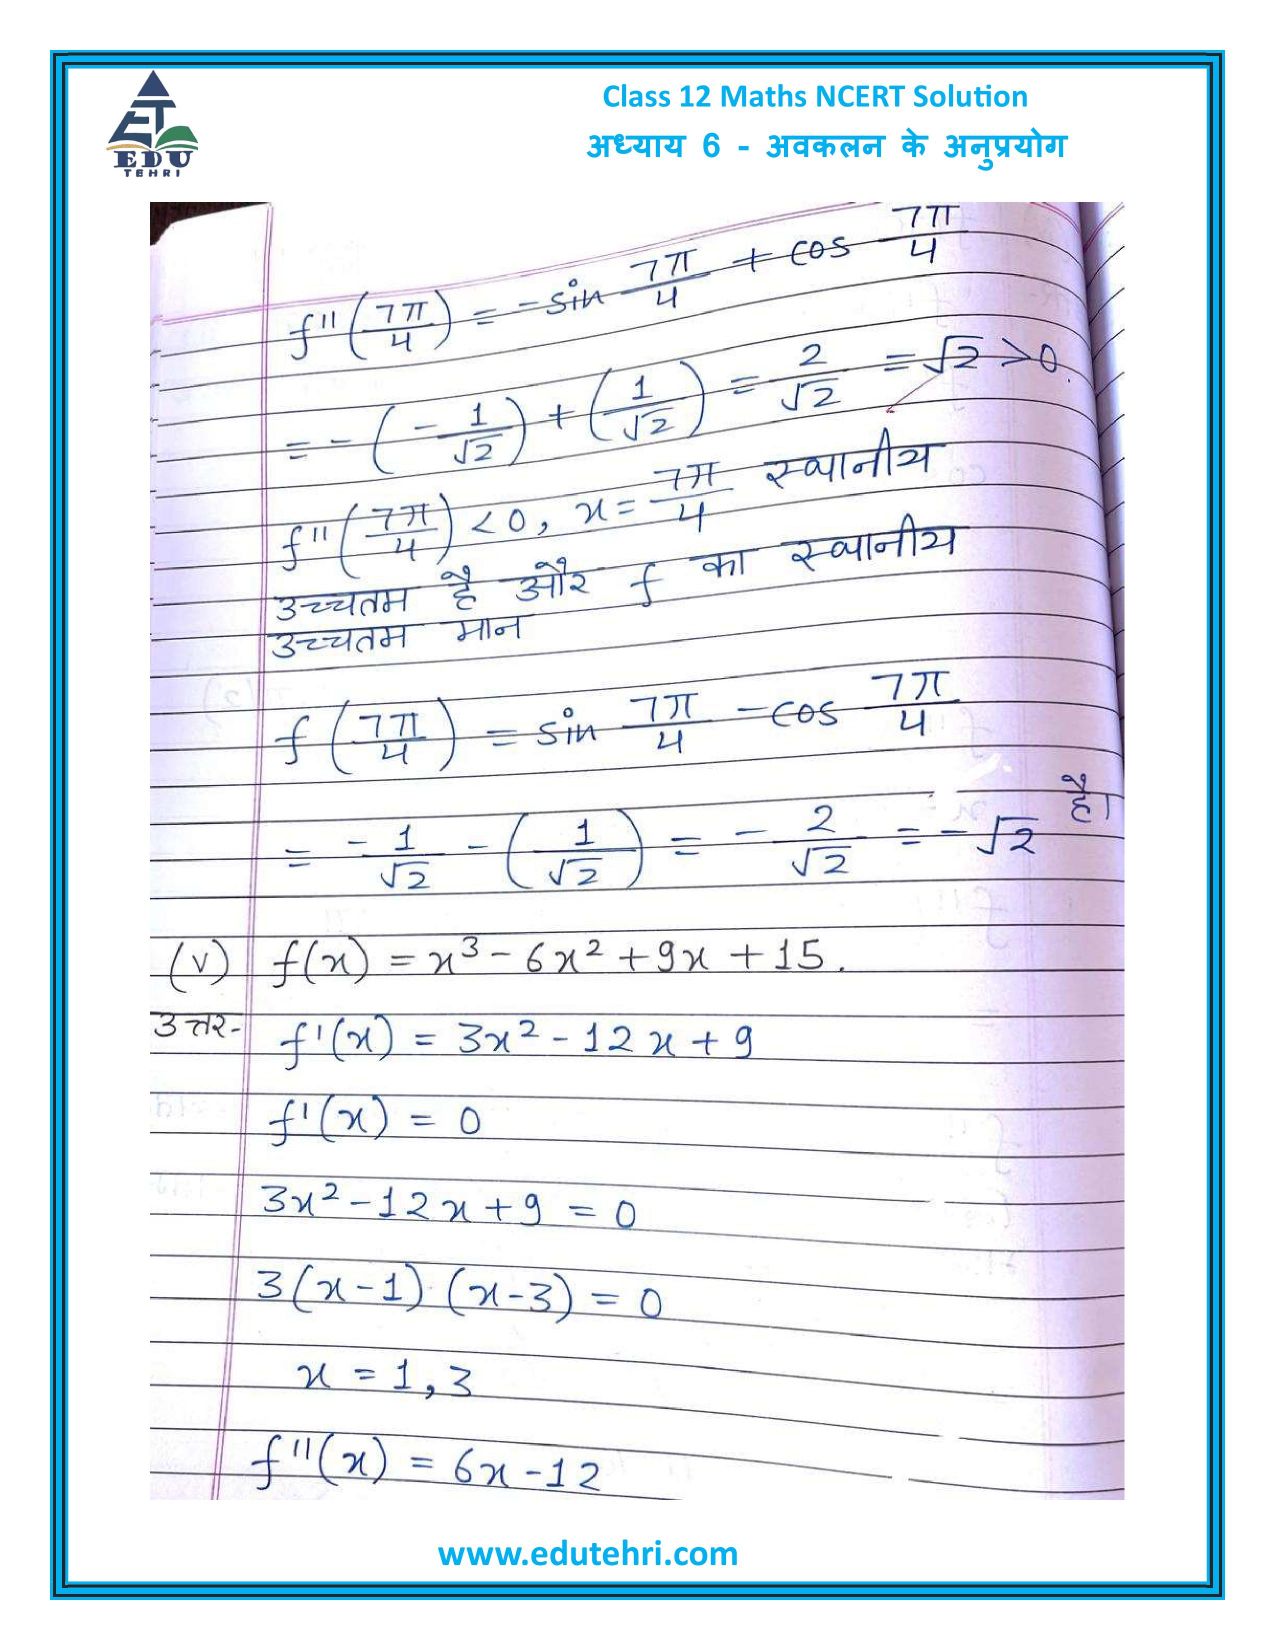 ET
EDU
TEHRI
Class 12 Maths NCERT Solution
अध्याय 6 - अवकलन के अनुप्रयोग
f''(7π/4) = -sin 7π/4 + cos 7π/4
= -(-1/√2) + (1/√2) = 2/√2 = √2 > 0.
f''(7π/4) < 0, x = 7π/4 स्थानीय
उच्चतम है और f का स्थानीय
उच्चतम मान
f(7π/4) = sin 7π/4 - cos 7π/4
= -1/√2 - (1/√2) = -2/√2 = -√2 है।
(v) f(x) = x³ - 6x² + 9x + 15.
उत्तर- f'(x) = 3x² - 12x + 9
f'(x) = 0
3x² - 12x + 9 = 0
3(x-1) (x-3) = 0
x = 1, 3
f''(x) = 6x - 12
www.edutehri.com